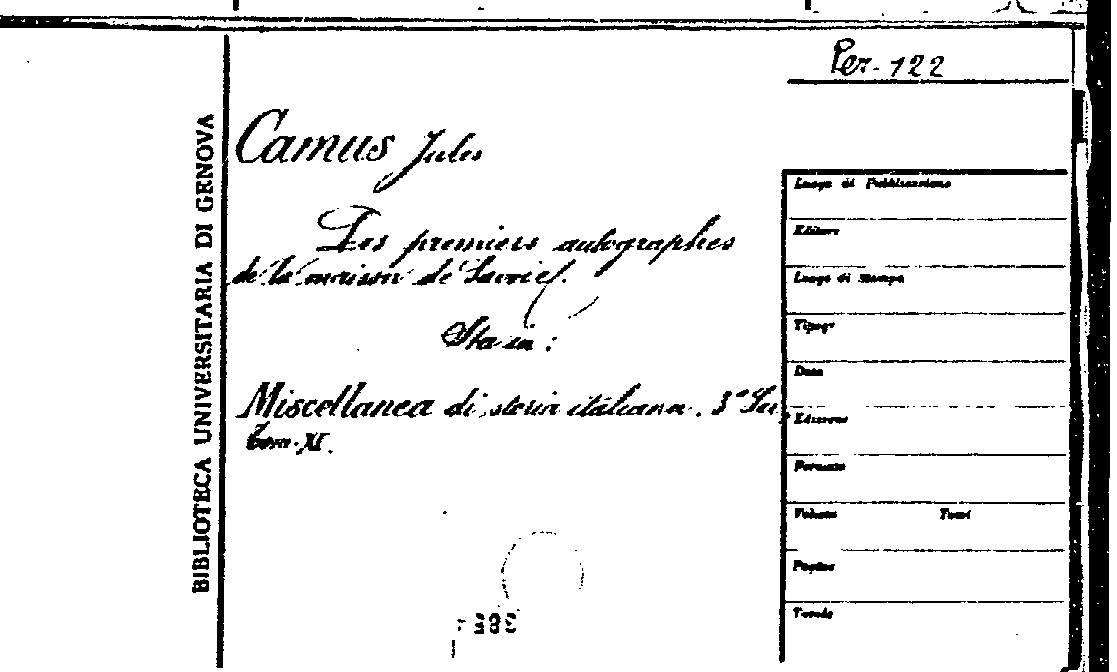 Per. 122
BIBLIOTECA UNIVERSITARIA DI GENOVA
Camus Jules
Les premiers autographes
de la maison de Savoie.
Sta in:
Miscellanea di storia italiana. 3ª Ser
Tom. XI.
Luogo di Pubblicazione
Editore
Luogo di Stampa
Tipogr
Data
Edizione
Formato
Volume Tomi
Pagine
Tavole